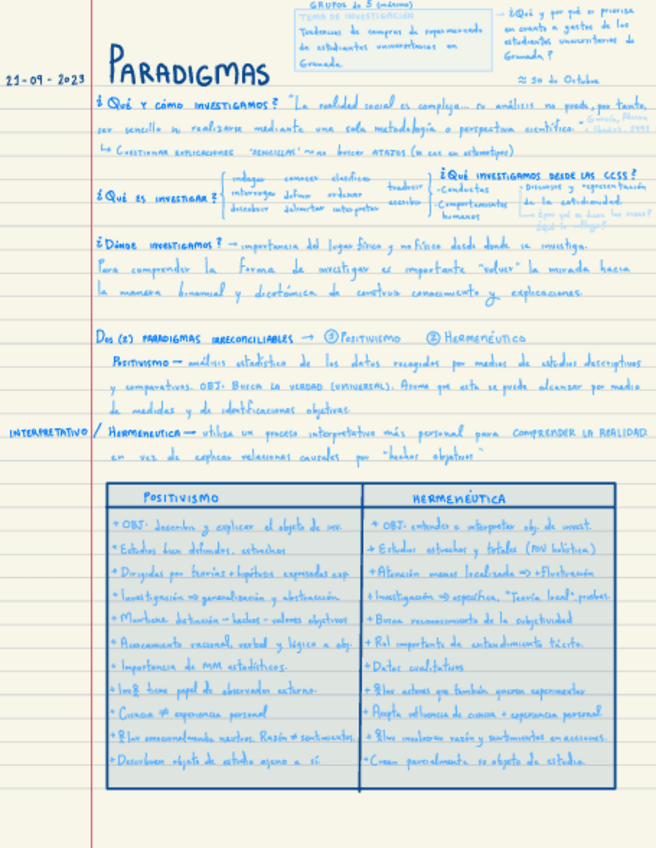 GRUPOS de 5 (máximo)
TEMA DE INVESTIGACIÓN
Tendencias de compras de supermercado
de estudiantes universitarios en
Granada.
→ ¿Qué y por qué se prioriza
en cuanto a gastos de los
estudiantes universitarios de
Granada?
≈ 30 de Octubre
21-09-2023
PARADIGMAS
¿QUÉ Y CÓMO INVESTIGAMOS? "La realidad social es compleja... su análisis no puede, por tanto,
ser sencillo ni realizarse mediante una sola metodología o perspectiva científica."
↳ CUESTIONAR EXPLICACIONES "SENCILLAS" no buscar ATAJOS (se cae en estereotipos)
¿QUÉ ES INVESTIGAR?
indagar conocer clasificar
interrogar definir ordenar
descubrir delimitar interpretar
traducir
escribir
¿QUÉ INVESTIGAMOS DESDE LAS CCSS?
-Conductas
-Comportamientos
humanos
Discursos y representación
de la cotidianidad
¿DÓNDE INVESTIGAMOS? → importancia del lugar físico y no físico desde donde se investiga.
Para comprender la forma de investigar es importante "volver" la mirada hacia
la manera binomial y dicotómica de construir conocimiento y explicaciones.
DOS (2) PARADIGMAS IRRECONCILIABLES → ① POSITIVISMO ② HERMENÉUTICO
POSITIVISMO — análisis estadístico de los datos recogidos por medios de estudios descriptivos
y comparativos. OBJ: BUSCA LA VERDAD (UNIVERSAL). Asume que esta se puede alcanzar por medio
de medidas y de identificaciones objetivas.
INTERPRETATIVO / HERMENEUTICA — utiliza un proceso interpretativo más personal para COMPRENDER LA REALIDAD
en vez de explicar relaciones causales por "hechos objetivos"
POSITIVISMO
+ OBJ: describir y explicar el objeto de inv.
+ Estudios bien definidos, estrechos
+ Dirigidas por teorías + hipótesis expresadas exp.
+ Investigación ⇒ generalización y abstracción
+ Mantiene distinción - hechos - valores objetivos
+ Acercamiento racional, verbal y lógico a obj.
+ Importancia de MM estadísticos.
+ tiene papel de observador externo.
+ Ciencia ≠ experiencia personal
+ emocionalmente neutros. Razón ≠ sentimientos.
+ Descubren objeto de estudio ajeno a sí
HERMENÉUTICA
+ OBJ: entender e interpretar obj. de invest.
+ Estudios estrechos y totales (POV holística)
+ Atención menos localizada ⇒ +Fluctuación
+ Investigación ⇒ específica, "Teoría local"
+ Busca reconocimiento de la subjetividad
+ Rol importante de entendimiento tácito.
+ Datos cualitativos
+ actores que también quieren experimentar
+ Acepta influencia de ciencia + experiencia personal
+ involucran razón y sentimientos en acciones.
+ Crean parcialmente su objeto de estudio.